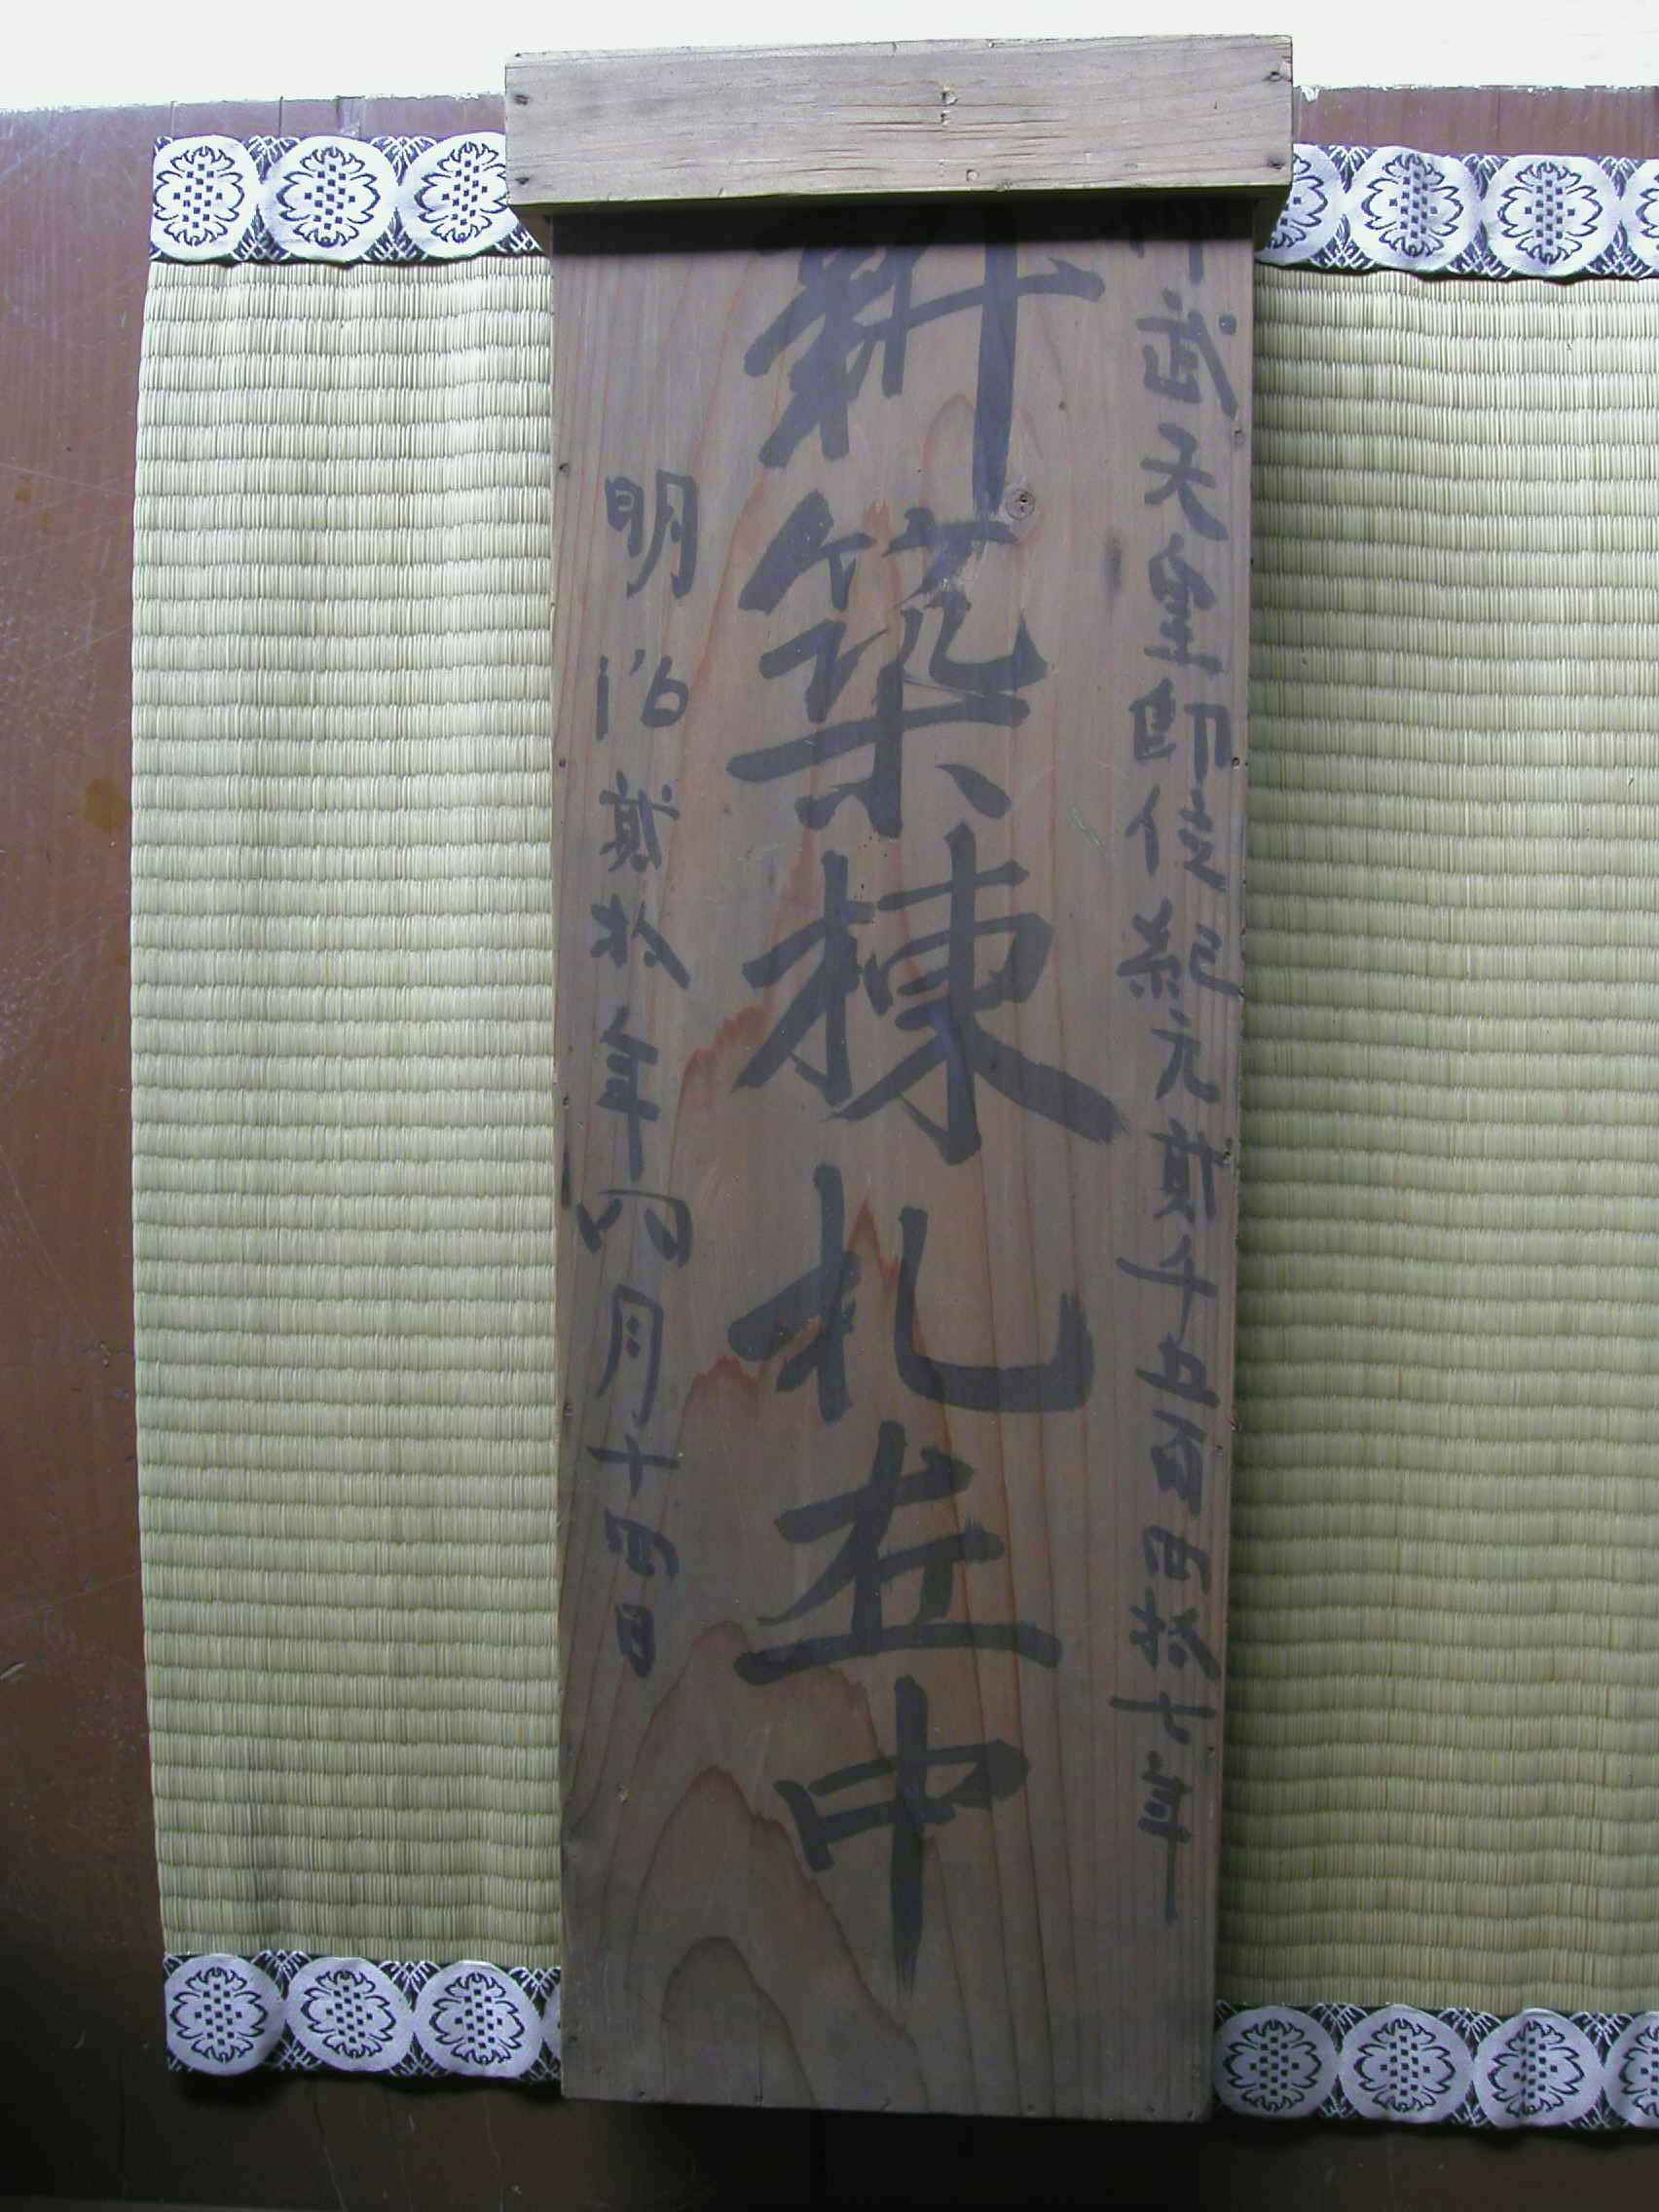 神武天皇即位紀元貳千五百四拾七年
新築棟札在中
明治貳拾年四月十四日